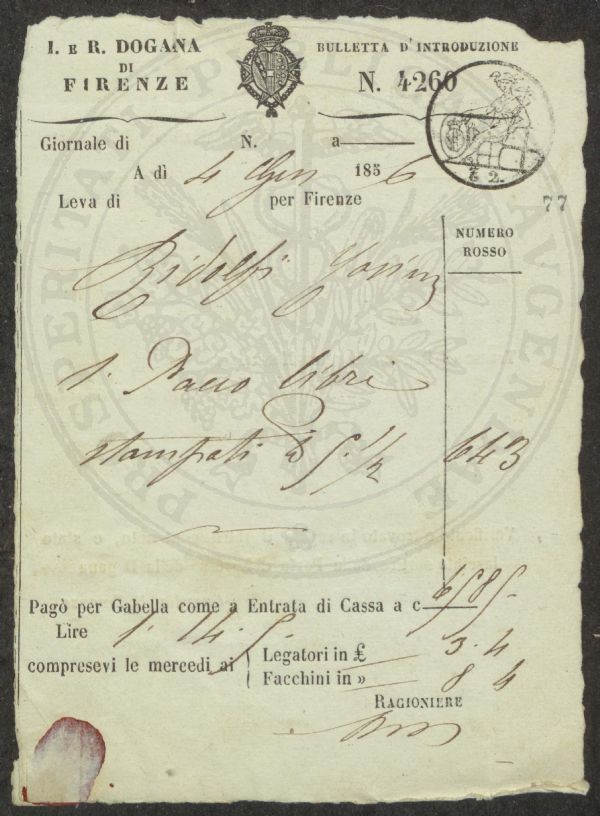 I. E R. DOGANA
DI
FIRENZE
BULLETTA D'INTRODUZIONE
N. 4260
₤ 2.
Giornale di N. a
A dì 4 Gen 1856
Leva di per Firenze
77
NUMERO
ROSSO
Ridolfi
1. Pacco libri
stampati 5. 1/2 643
Pagò per Gabella come a Entrata di Cassa a c
Lire 1. 14. 5.
compresevi le mercedi ai
Legatori in £ 3. 4
Facchini in » 8 4
RAGIONIERE
PROSPERITATI PUBLICAE AUGENDAE